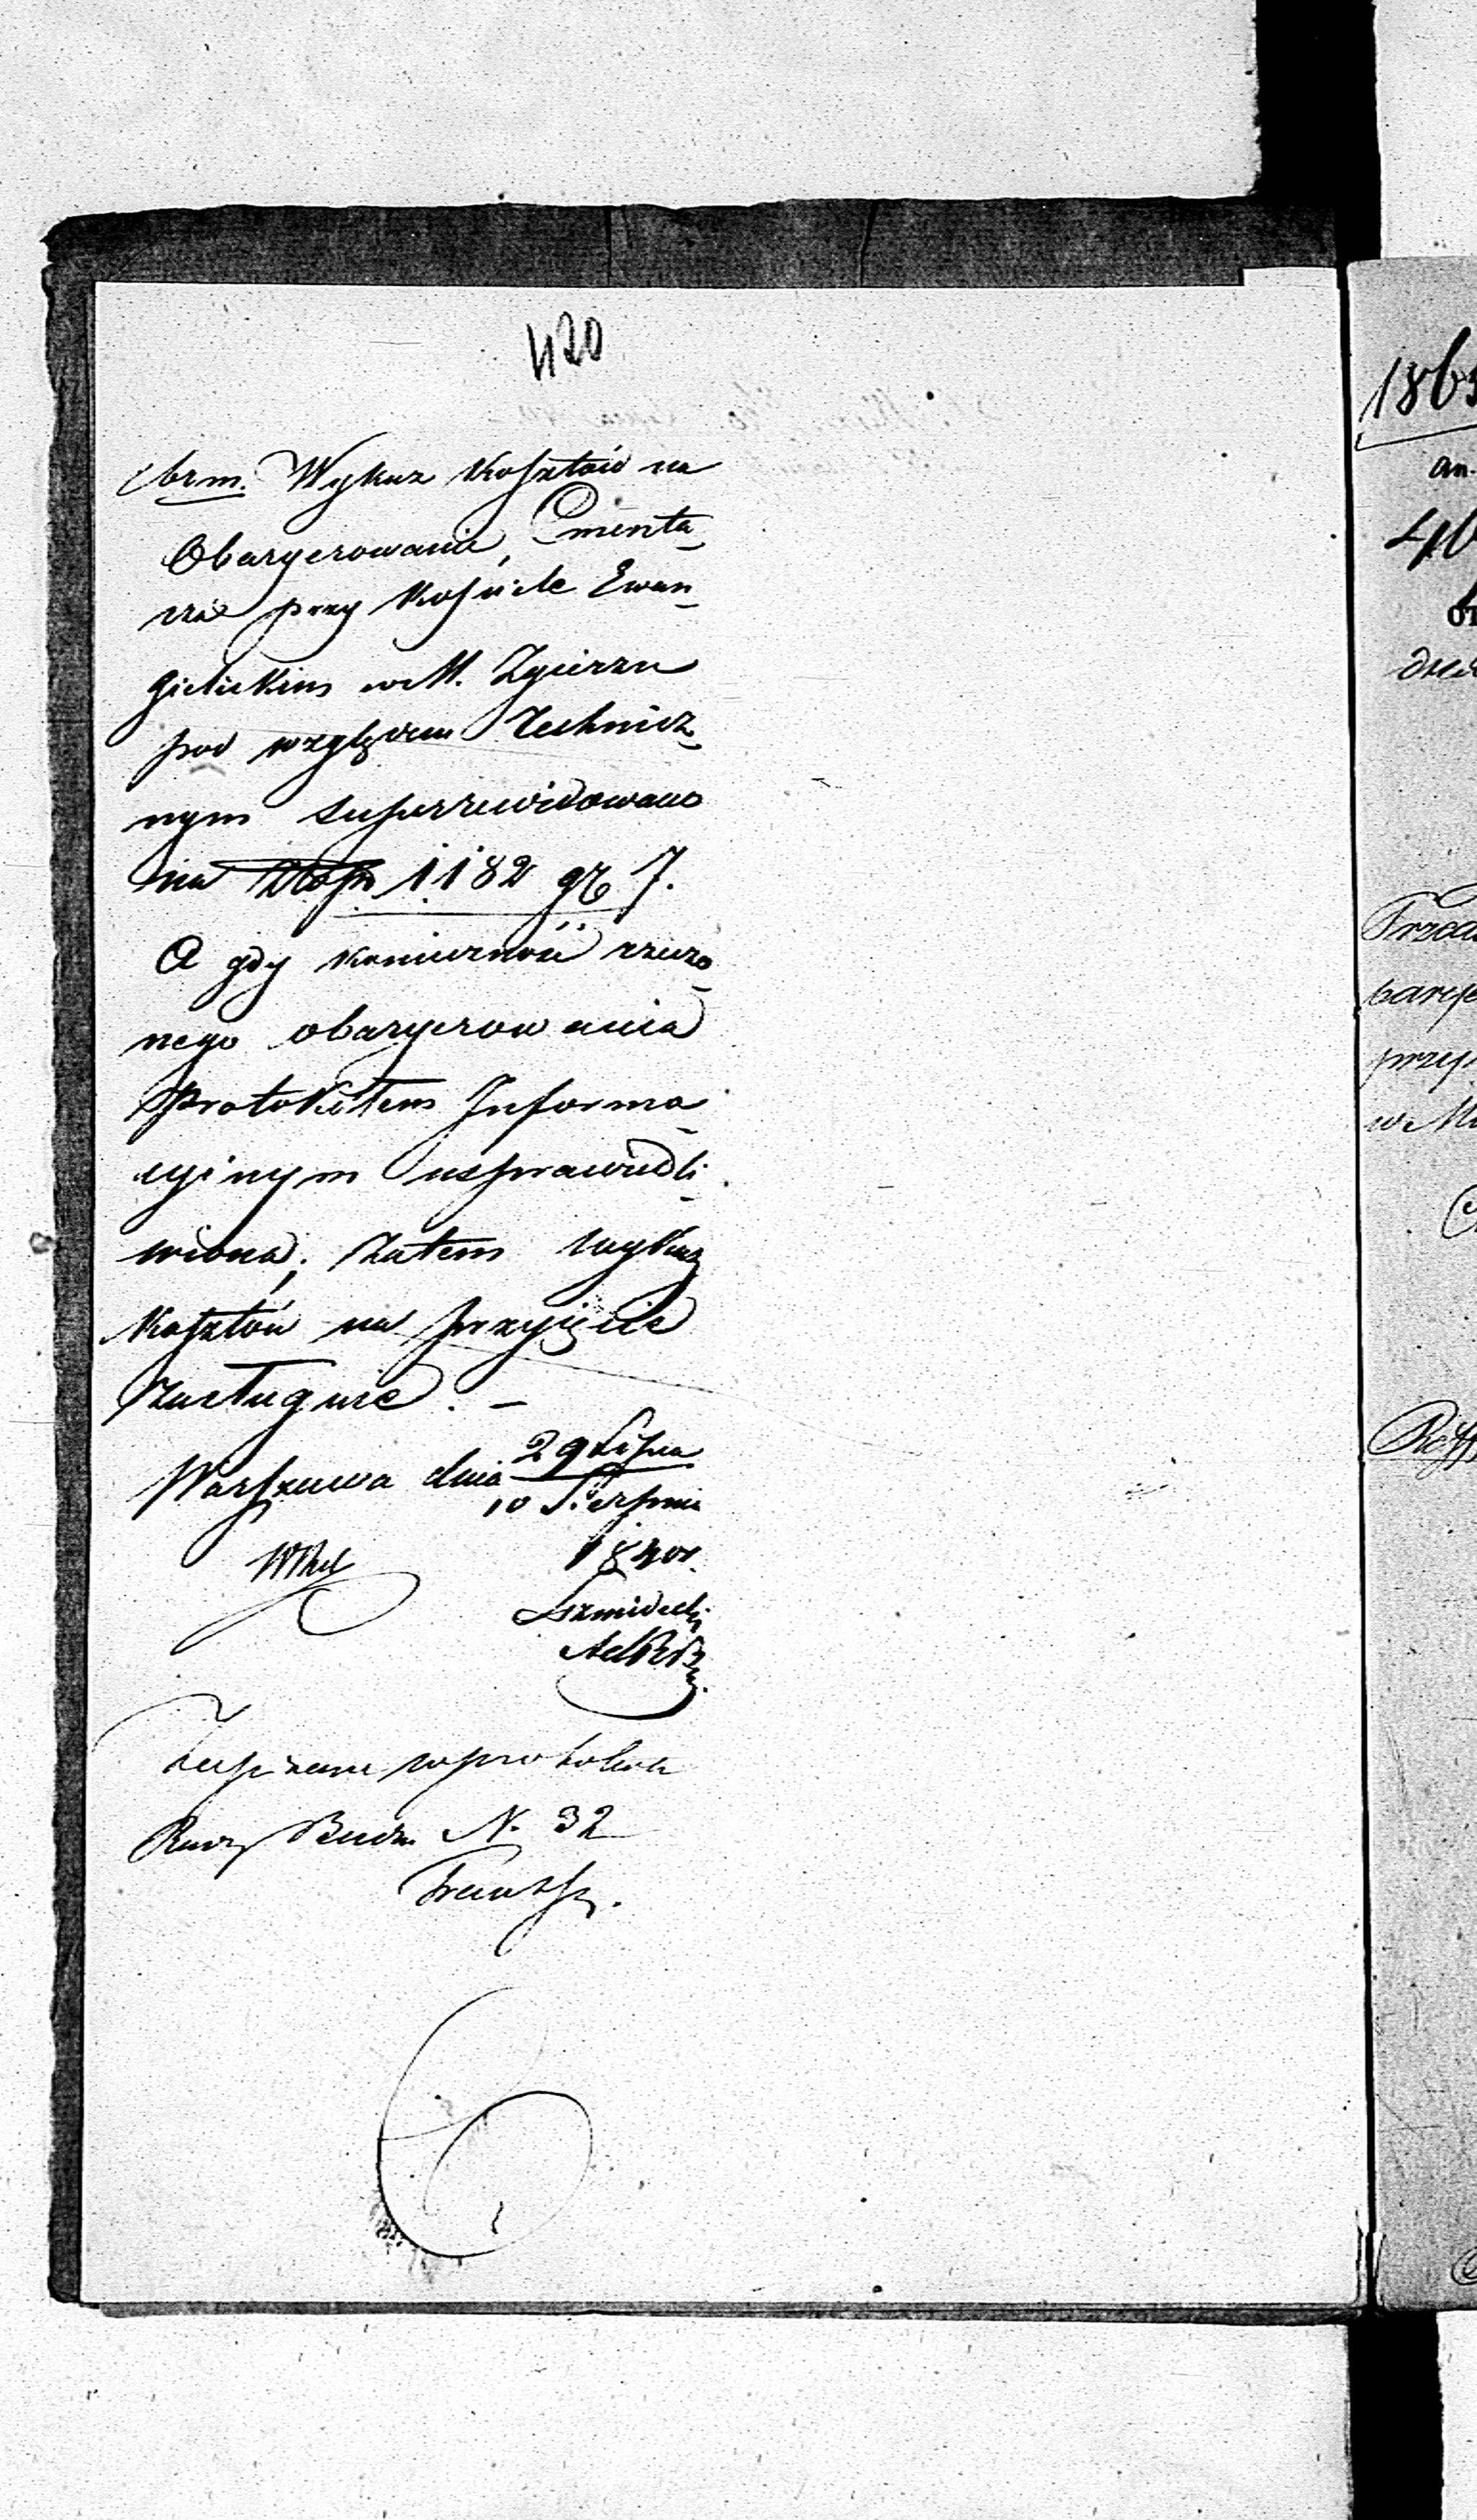 420
brm. Wykaz Kosztów na
Obaryerowanie Cmenta-
rza przy Kosciele Ewan-
gielickim w M. Zgierzu
pod względem Technicz-
nym superrewidowano
na 1182 gr 7.
A gdy konieczność rzeczo-
nego obaryerowania
Protokółem Informa-
cyinym usprawiedli-
wiona; zatem wykaz
Kosztów na przyięcie
zasługuie. —
Warszawa dnia 29 Lipca
10 Sierpnia
1840r.
Zapisano w protokole
Rady Budn. N. 32
186
an.
46
Przed
barye
przy
w Mi